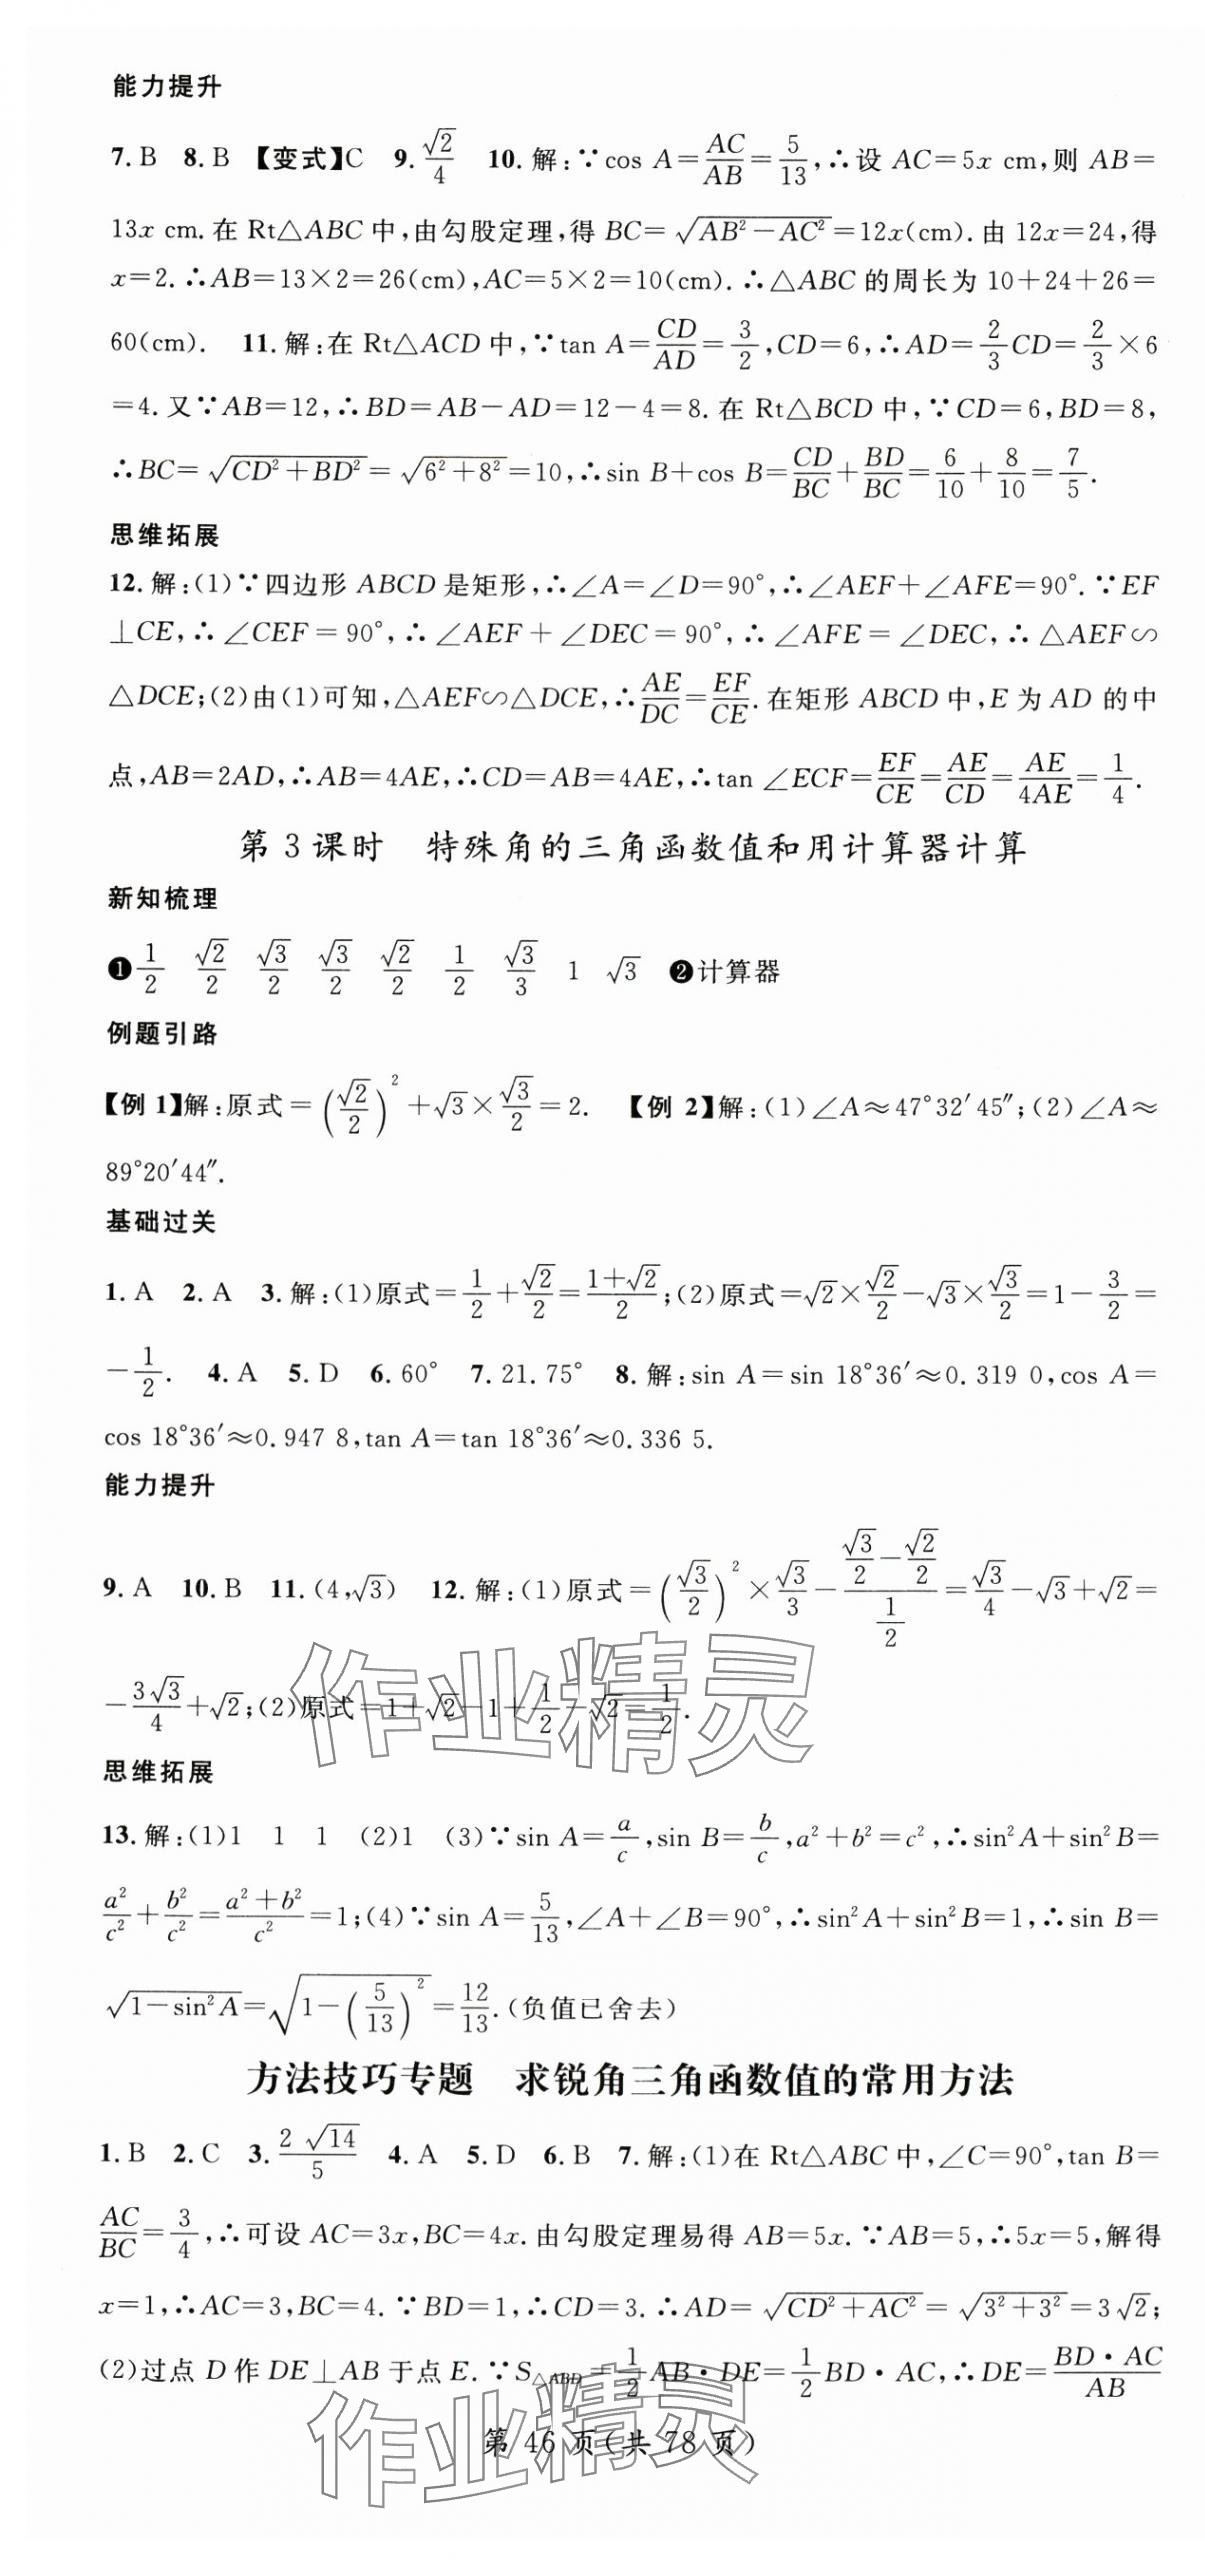 能力提升
7. B 8. B 【变式】C 9. √2/4 10. 解:∵cos A=AC/AB=5/13,∴设 AC=5x cm,则 AB=
13x cm. 在 Rt△ABC 中,由勾股定理,得 BC=√(AB²-AC²)=12x(cm). 由 12x=24,得
x=2. ∴AB=13×2=26(cm),AC=5×2=10(cm). ∴△ABC 的周长为 10+24+26=
60(cm). 11. 解:在 Rt△ACD 中,∵tan A=CD/AD=3/2,CD=6,∴AD=2/3CD=2/3×6
=4. 又∵AB=12,∴BD=AB-AD=12-4=8. 在 Rt△BCD 中,∵CD=6,BD=8,
∴BC=√(CD²+BD²)=√(6²+8²)=10,∴sin B+cos B=CD/BC+BD/BC=6/10+8/10=7/5.
思维拓展
12. 解:(1)∵四边形 ABCD 是矩形,∴∠A=∠D=90°,∴∠AEF+∠AFE=90°. ∵EF
⊥CE,∴∠CEF=90°,∴∠AEF+∠DEC=90°,∴∠AFE=∠DEC,∴△AEF∽
△DCE;(2)由(1)可知,△AEF∽△DCE,∴AE/DC=EF/CE. 在矩形 ABCD 中,E 为 AD 的中
点,AB=2AD,∴AB=4AE,∴CD=AB=4AE,∴tan ∠ECF=EF/CE=AE/CD=AE/4AE=1/4.
第 3 课时 特殊角的三角函数值和用计算器计算
新知梳理
❶1/2 √2/2 √3/2 √3/2 √2/2 1/2 √3/3 1 √3 ❷计算器
例题引路
【例 1】解:原式=(√2/2)²+√3×√3/2=2. 【例 2】解:(1)∠A≈47°32′45″;(2)∠A≈
89°20′44″.
基础过关
1. A 2. A 3. 解:(1)原式=1/2+√2/2=(1+√2)/2;(2)原式=√2×√2/2-√3×√3/2=1-3/2=
-1/2. 4. A 5. D 6. 60° 7. 21.75° 8. 解:sin A=sin 18°36′≈0.319 0,cos A=
cos 18°36′≈0.947 8,tan A=tan 18°36′≈0.336 5.
能力提升
9. A 10. B 11. (4,√3) 12. 解:(1)原式=(√3/2)²×√3/3-(√3/2-√2/2)/(1/2)=√3/4-√3+√2=
-3√3/4+√2;(2)原式=1+√2-1+1/2-√2=1/2.
思维拓展
13. 解:(1)1 1 1 (2)1 (3)∵sin A=a/c,sin B=b/c,a²+b²=c²,∴sin²A+sin²B=
a²/c²+b²/c²=(a²+b²)/c²=1;(4)∵sin A=5/13,∠A+∠B=90°,∴sin²A+sin²B=1,∴sin B=
√(1-sin²A)=√(1-(5/13)²)=12/13.(负值已舍去)
方法技巧专题 求锐角三角函数值的常用方法
1. B 2. C 3. 2√14/5 4. A 5. D 6. B 7. 解:(1)在 Rt△ABC 中,∠C=90°,tan B=
AC/BC=3/4,∴可设 AC=3x,BC=4x. 由勾股定理易得 AB=5x. ∵AB=5,∴5x=5,解得
x=1,∴AC=3,BC=4. ∵BD=1,∴CD=3. ∴AD=√(CD²+AC²)=√(3²+3²)=3√2;
(2)过点 D 作 DE⊥AB 于点 E. ∵S△ABD=1/2AB·DE=1/2BD·AC,∴DE=BD·AC/AB
第 46 页(共 78 页)
作业精灵
作业精灵